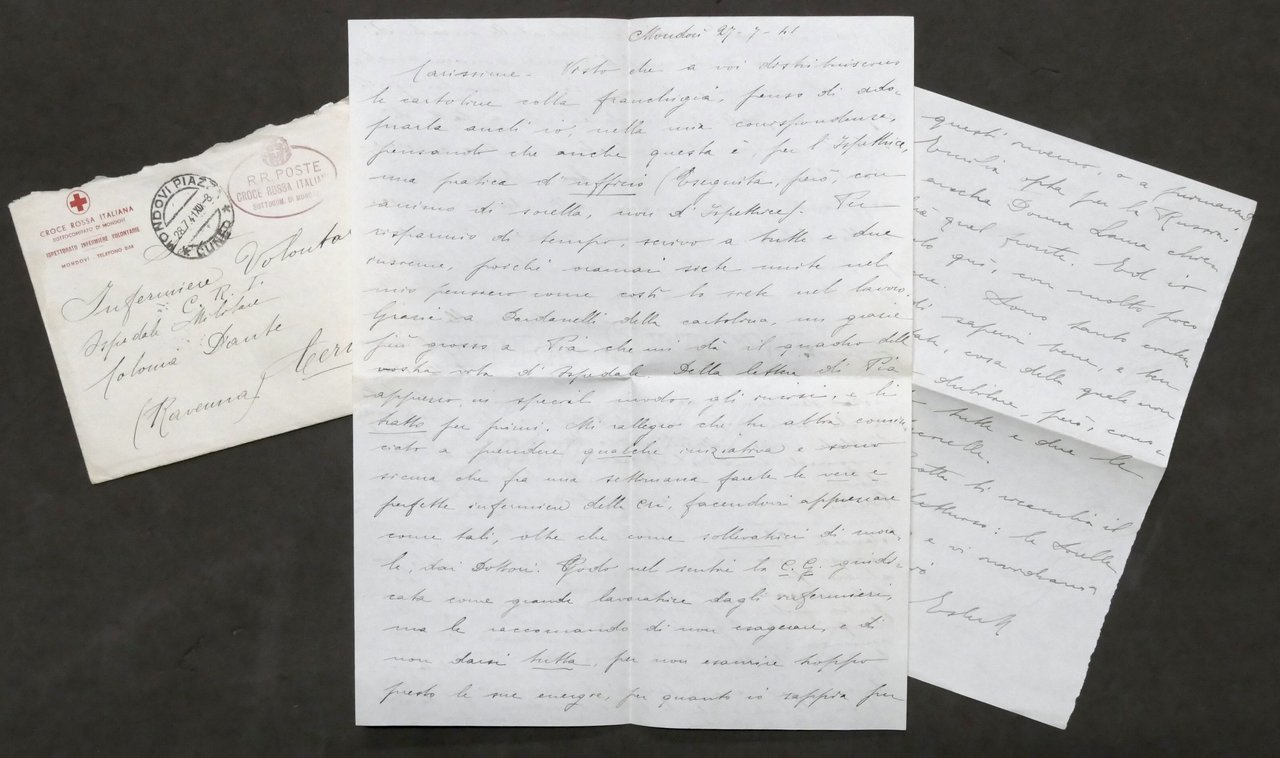 CROCE ROSSA ITALIANA
SOTTOCOMITATO DI MONDOVÌ
ISPETTORATO INFERMIERE VOLONTARIE
MONDOVÌ TELEFONO
MONDOVI PIAZZA
28.7.41
CUNEO
R.R. POSTE
CROCE ROSSA ITALIANA
SOTTOCOM. DI
Infermiere Volonta
C. R. I.
Ospedale Militare
Colonia Dante
Cerv
(Ravenna)
Mondovì 27-7-41
Carissime - Visto che a voi distribuiscono
le cartoline colla franchigia, penso di ado-
prarla anch'io, nella mia corrispondenza,
pensando che anche questa è per l'Ispettrice,
una pratica d'ufficio (Eseguita, però, con
animo di sorella, non d'Ispettrice) Per
risparmio di tempo, scrivo a tutte e due
insieme, poichè oramai siete unite nel
mio pensiero come costì lo siete nel lavoro.
Grazie a Dardanelli della cartolina, un grazie
più grosso a Pia che mi dà il quadro della
vostra vita d'Ospedale. Della lettera di Pia
appresso, in special modo, gli incisi, e li
tratto per primi. Mi rallegro che tu abbia comin
ciato a prendere qualche iniziativa e sono
sicura che fra una settimana farete le vere e
perfette infermiere della CRI, facendovi apprezzare
come tali, oltre che come sollevatrici di mora
le, dai Dottori. Godo nel sentire la C. G. giudi-
cata come grande lavoratrice dagli infermieri,
ma le raccomando di non esagerare, e di
non darsi tutta, per non esaurire troppo
presto le sue energie, per quanto io sappia per
questi inverno, o a primavera
Emilia opta per la Russia,
anche Donna
qual fronte. Ed io
quì, con molto poco
Sono tanto conten
di sapervi bene, e ben
tate, cosa della quale non
dubitavo, però, cono
tutte e due le
relle.
ti
affettuoso: le Sorelle
e vi mandano